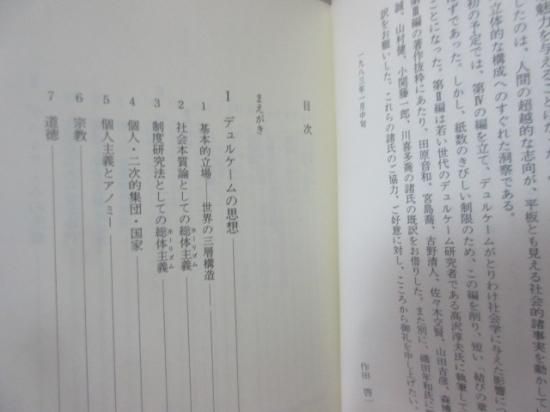 魅力を与えることにな
したのは、人間の超越的な志向が、平板とも見える社会的諸事実を動かして
立体的な構成へのすぐれた洞察である。
初の予定では、第Ⅳの編を立て、デュルケームがとりわけ社会学に与えた影響に
はずであった。しかし、紙数のきびしい制限のため、この編を削り、短い「結びの
ことになった。第Ⅱ編は若い世代のデュルケーム研究者である高沢淳夫氏に執筆し
第Ⅲ編の著作抜粋にあたり、田原音和、宮島喬、吉野清人、佐々木交賢、山田吉彦、森
誠、山村健、小関藤一郎、川喜多喬の諸氏の既訳をお借りした。また別に、織田年和氏に
訳をお願いした。これらの諸氏のご協力、ご好意に対し、こころから御礼を申し上げたい。
一九八三年一月中旬
作田啓一
目次
まえがき
Ⅰ デュルケームの思想
1 基本的立場——世界の三層構造
2 社会本質論としての総体主義
ホーリズム
3 制度研究法としての総体主義
ホーリズム
4 個人・二次的集団・国家
5 個人主義とアノミー
6 宗教
7 道徳